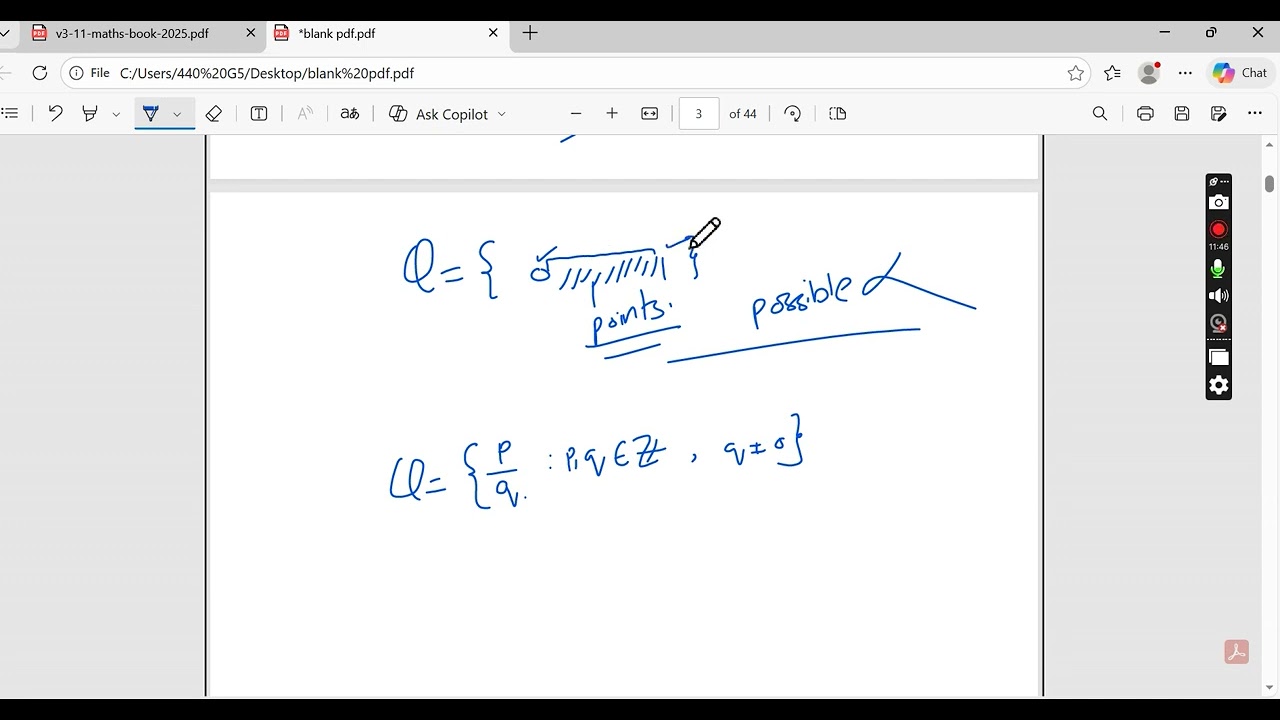 v3-11-maths-book-2025.pdf
*blank pdf.pdf
File C:/Users/440%20G5/Desktop/blank%20pdf.pdf
Chat
Ask Copilot
3 of 44
11:46
Q = { 0 1 }
points.
possible
Q = { p/q : p,q ∈ ℤ , q ≠ 0 }